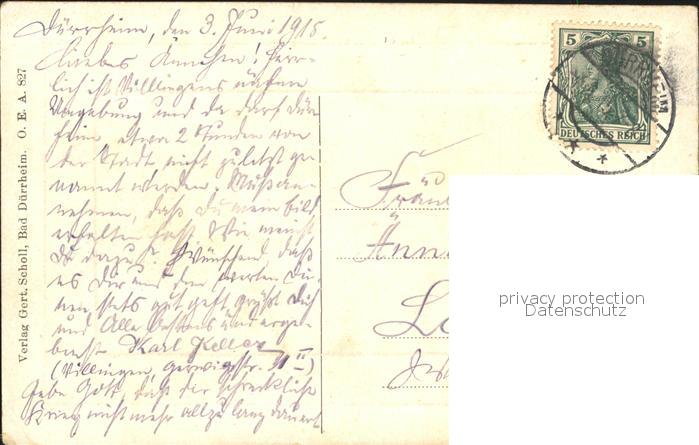 Dürrheim, den 3. Juni 1915.
Liebes Ännchen! Herr-
lich ist Villingens nähere
Umgebung und da darf Dürr-
heim, etwa 2 Stunden von
der Stadt, nicht zuletzt ge-
nannt werden. Muß an-
nehmen, daß Du mein Bild
erhalten hast. Wie meinst
Du dazu? Wünschend, daß
es Dir und den werten Dei-
nen stets gut geht grüßt Dich
und Alle bestens Dein erge-
benster Karl Keller
(Villingen, Gerwigstr. II)
Gebe Gott, daß der schreckliche
Krieg nicht mehr allzu lang dauert
Verlag Gert. Scholl, Bad Dürrheim. O. E. A. 827
5 5
DEUTSCHES REICH
DÜRRHEIM
Fräu
Änn
privacy protection
Datenschutz